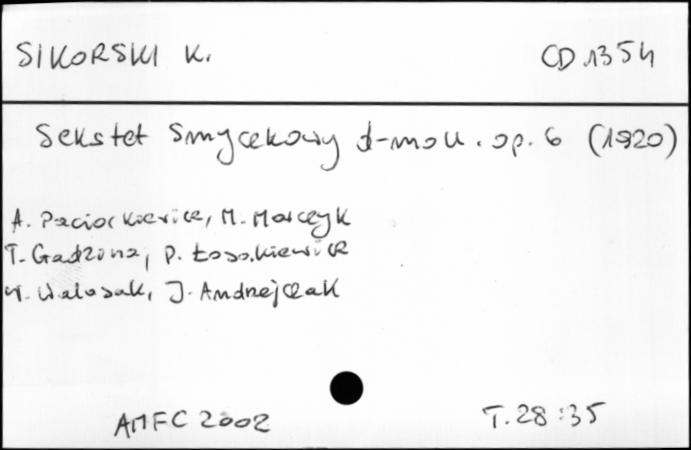 SIKORSKI K. CD 1354
Sekstet Smyczkowy d-moll. op. 6 (1920)
A. Paciorkiewicz, M. Marczyk
T. Gadzina, P. Łosakiewicz
W. Walasek, J. Andrzejczak
AMFC 2002 T. 28:35